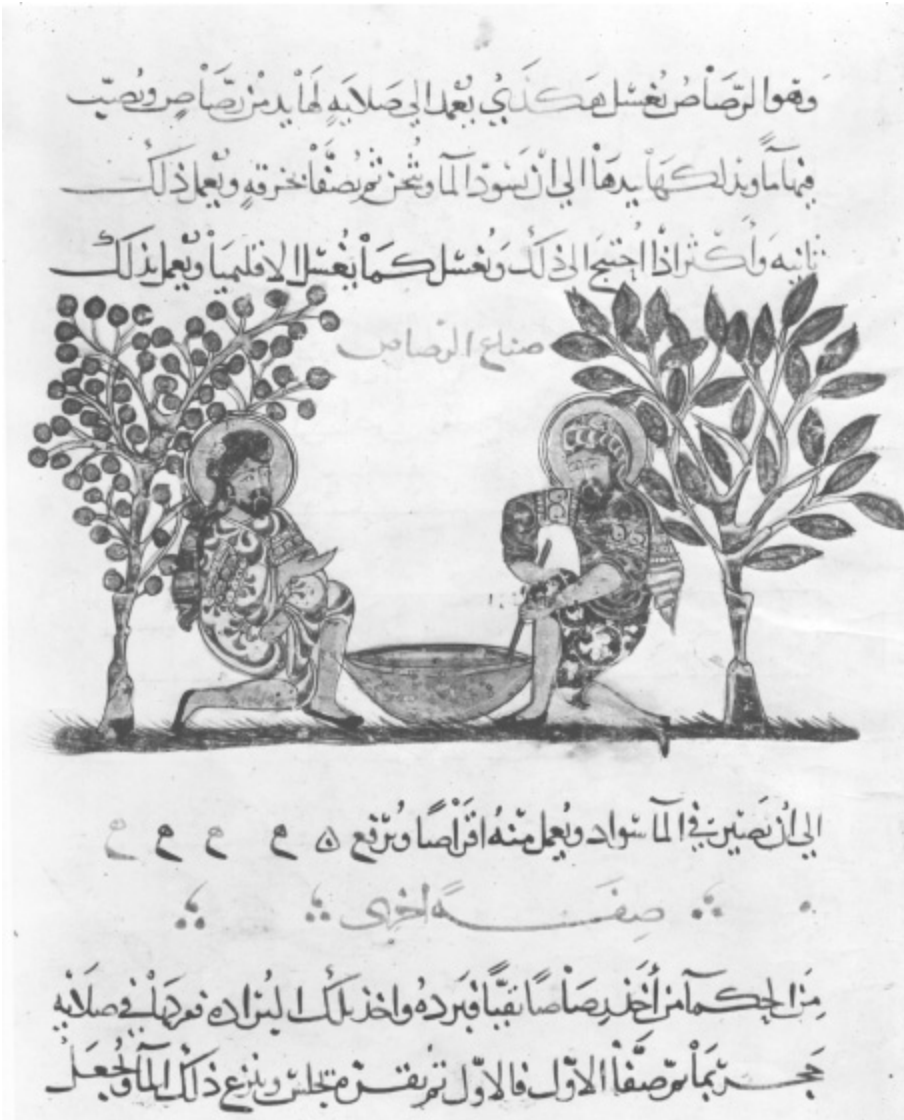 وهو الرصاص يغسل هكذي يعمد الي صلايه لها يد من رصاص ويصيب
فيها ماً ويدلكها بيدها الي ان يسود الما ويثخن ثم يصفا بخرقه ويعمل ذلك
ثانيه وأكثر اذا احتيج الى ذلك ويغسل كما يغسل الاقليميا ويعمل بذلك
صناع الرصاص
الي ان يصير في الما سواد ويعمل منه اقراصاً ويرفع
صفة اخرى
من الحكما من أخذ رصاصاً نقيّاً فبرده واخذ تلك البراده في صلايه
حجر بما ثم صفا الاول فالاول ثم يترك ذلك الما